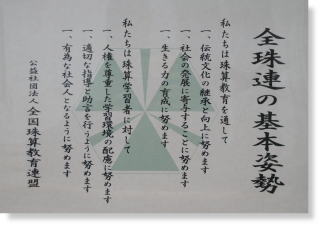 全珠連の基本姿勢
私たちは珠算教育を通して
一、伝統文化の継承と向上に努めます
一、社会の発展に寄与することに努めます
一、生きる力の育成に努めます
私たちは珠算学習者に対して
一、人権を尊重した学習環境の配慮に努めます
一、適切な指導と助言を行うように努めます
一、有為な社会人となるように努めます
公益社団法人 全国珠算教育連盟